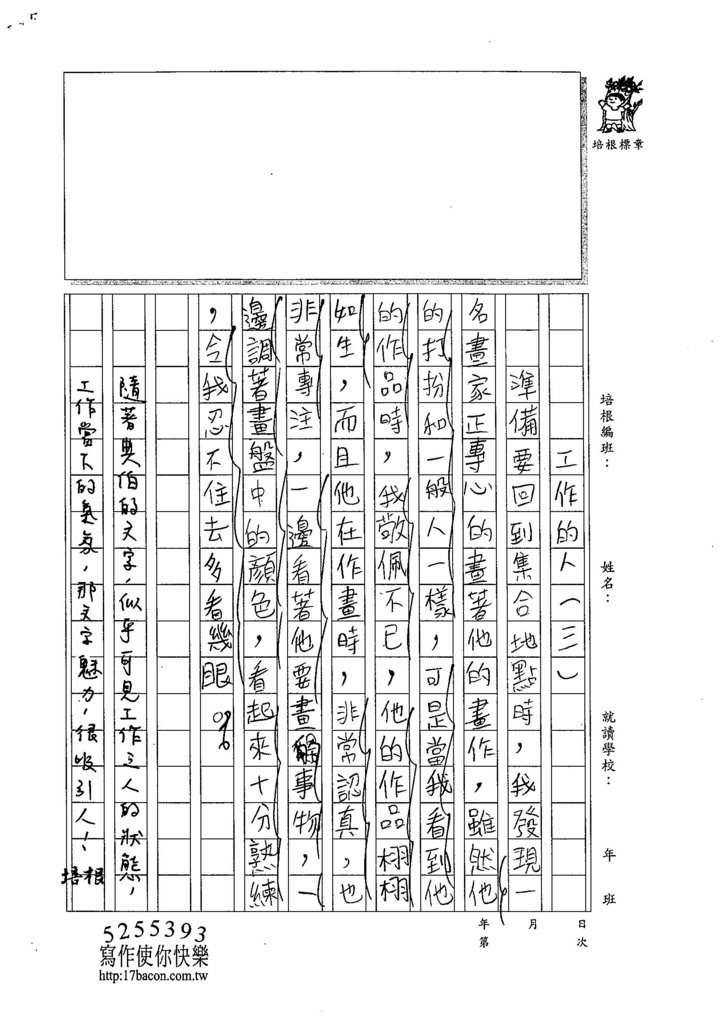 培根標章
培根編班：
姓名：
就讀學校：
年
班
年
月
日
第
次
工作的人（三）
準備要回到集合地點時，我發現一
名畫家正專心的畫著他的畫作，雖然他
的打扮和一般人一樣，可是當我看到他
的作品時，我敬佩不已，他的作品栩栩
如生，而且他在作畫時，非常認真，也
非常專注，一邊看著他要畫的事物，一
邊調著畫盤中的顏色，看起來十分熟練
，令我忍不住去多看幾眼。
隨著奥伯的文字，似乎可見工作之人的狀態，
工作當下的氣氛，那文字魅力，很吸引人！
培根
5255393
寫作使你快樂
http:17bacon.com.tw